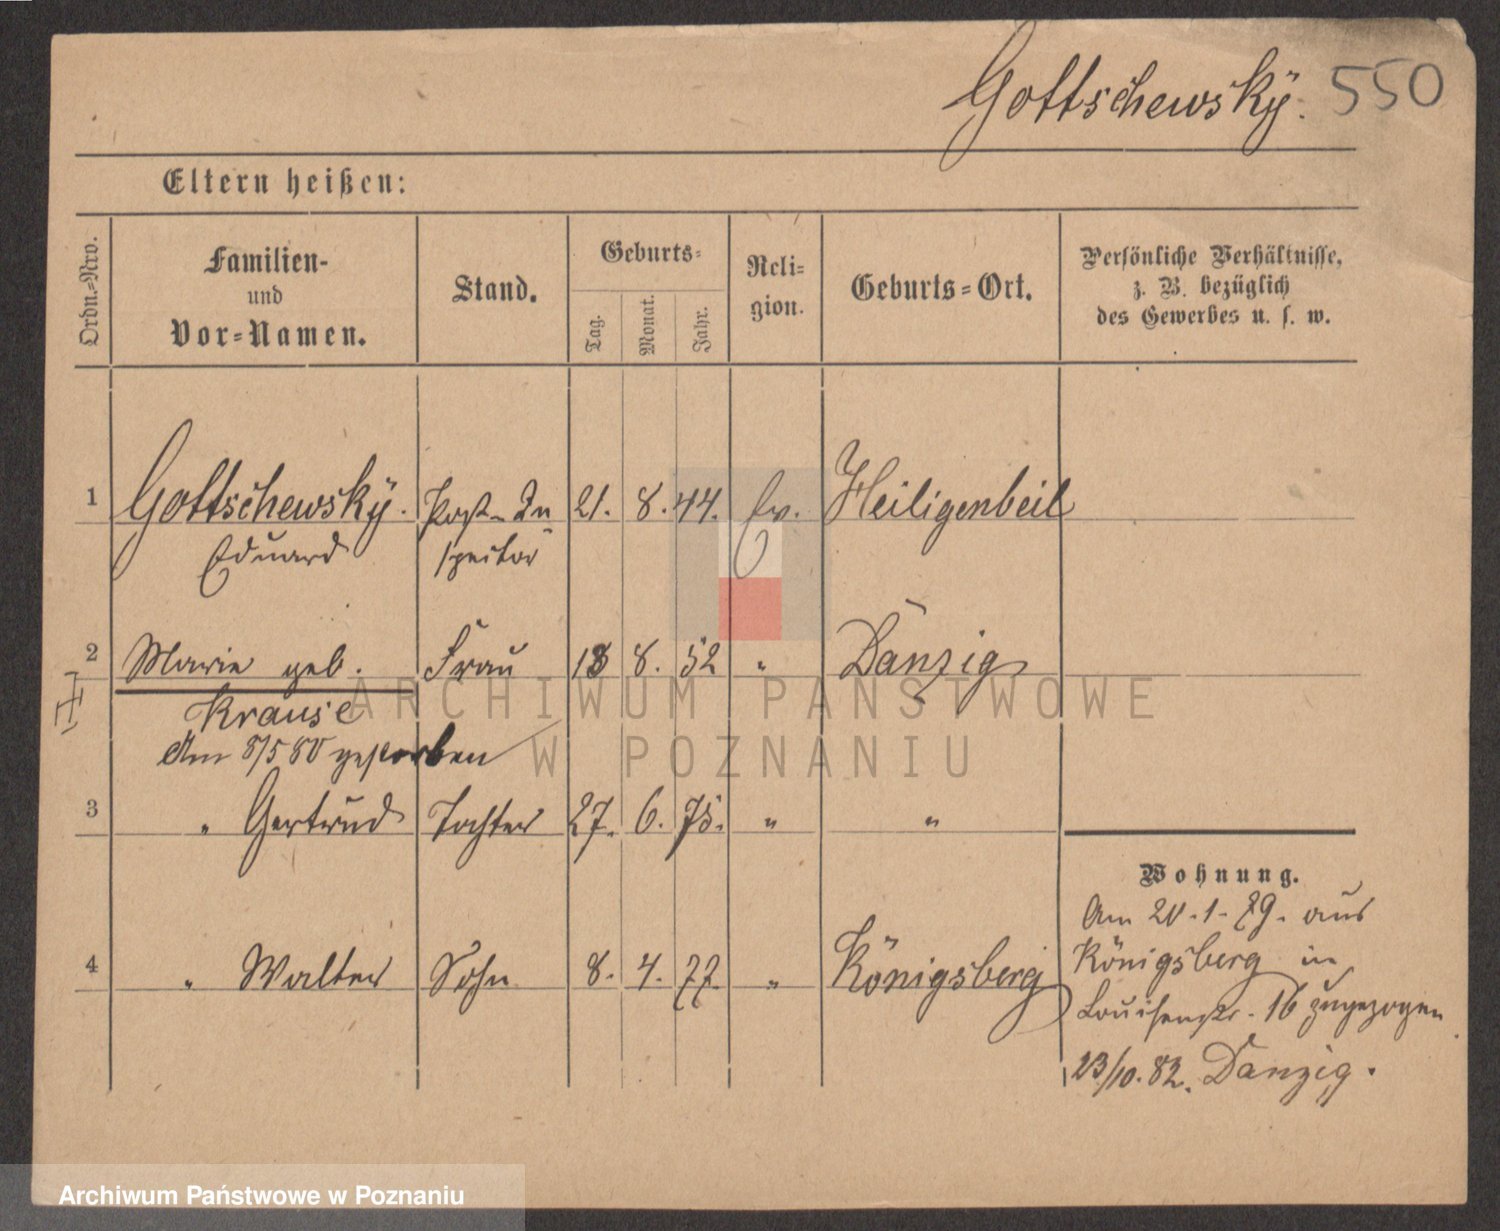 Gottschewsky. 550
Eltern heißen:
Ordn.-Nro.
Familien-
und
Vor-Namen.
Stand.
Geburts-
Tag.
Monat.
Jahr.
Reli-
gion.
Geburts-Ort.
Persönliche Verhältnisse,
z. B. bezüglich
des Gewerbes u. s. w.
1 Gottschewsky. Post-In 21. 8. 44. ev. Heiligenbeil
Eduard spector
2 Marie geb. Frau 18 8. 52 " Danzig
Krause
Am 8/5 80 gestorben
3 " Gertrud Tochter 27. 6. 75. " "
Wohnung.
Am 20.1.79. aus
4 " Walter Sohn 8. 4. 77. " Königsberg
Königsberg in
Louisenstr. 16 zugezogen
23/10. 82. Danzig.
ARCHIWUM PAŃSTWOWE
W POZNANIU
Archiwum Państwowe w Poznaniu